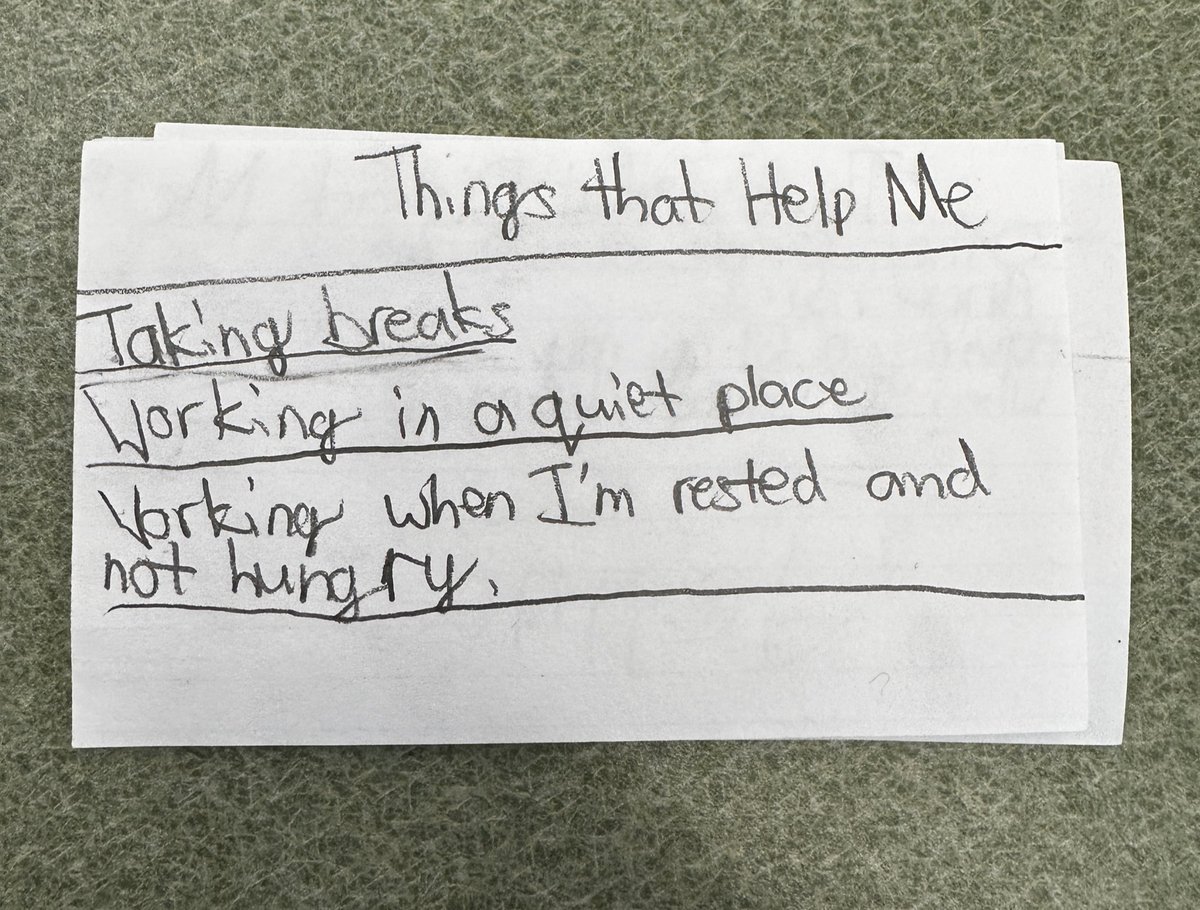 Things that Help Me
Taking breaks
Working in a quiet place
Working when I'm rested and
not hungry.